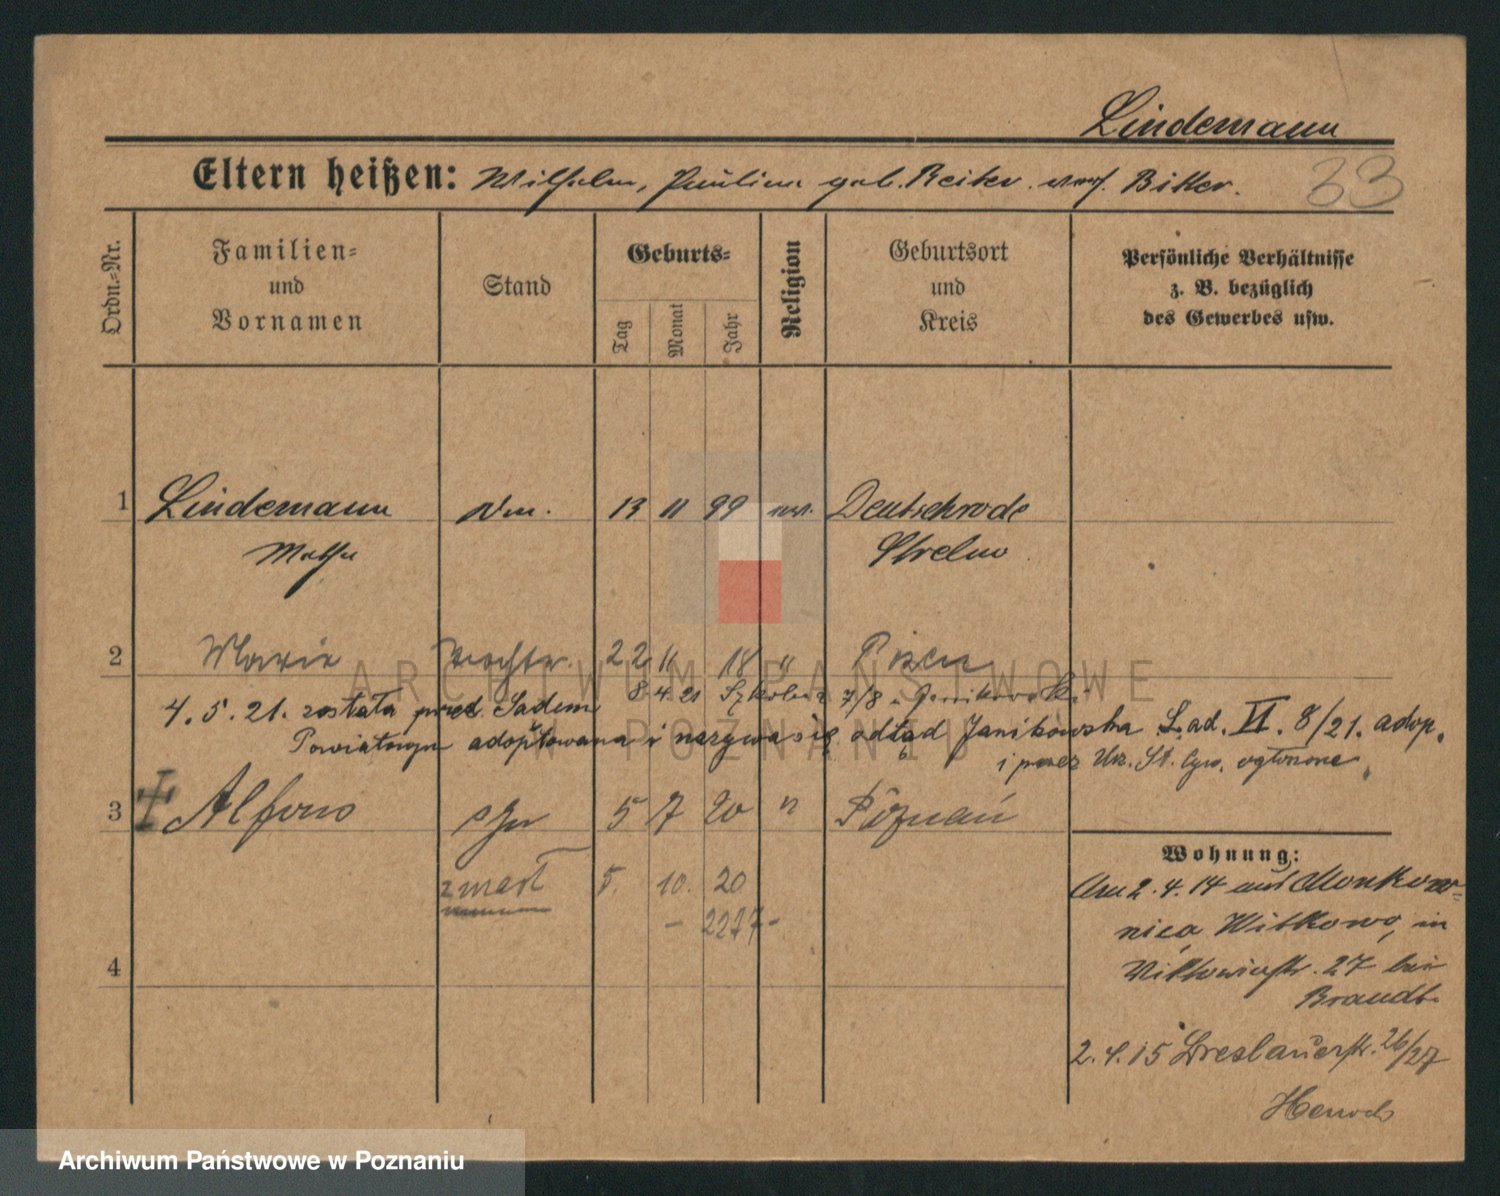 Lindemann
Eltern heißen: Wilhelm, Pauline geb. Reiter verw. Bitter.
33
Ordn.=Nr.
Familien=
und
Vornamen
Stand
Geburts=
Tag
Monat
Jahr
Religion
Geburtsort
und
Kreis
Persönliche Verhältnisse
z. B. bezüglich
des Gewerbes usw.
1 Lindemann 13 11 99 Deutschrode
Strelno
2 Maria Tochter 22 11 18 " Posen
8.4.21 7/8
4.5.21. została przed Sądem
Powiatowym adoptowana i nazywa się odtąd Janikowska L.ad. VI. 8/21. adop.
i przez Urz. St. Cyw. ogłoszone
3 Alfons 5 7 20 " Poznań
zmarł 5. 10. 20
- 2277 -
4
Wohnung:
Am 2.4.14 aus Monkow-
nica, Witkowo, in
Viktoriastr. 27 bei
Brandt
2.4.15 Breslauerstr. 26/27
ARCHIWUM PAŃSTWOWE
W POZNANIU
Archiwum Państwowe w Poznaniu